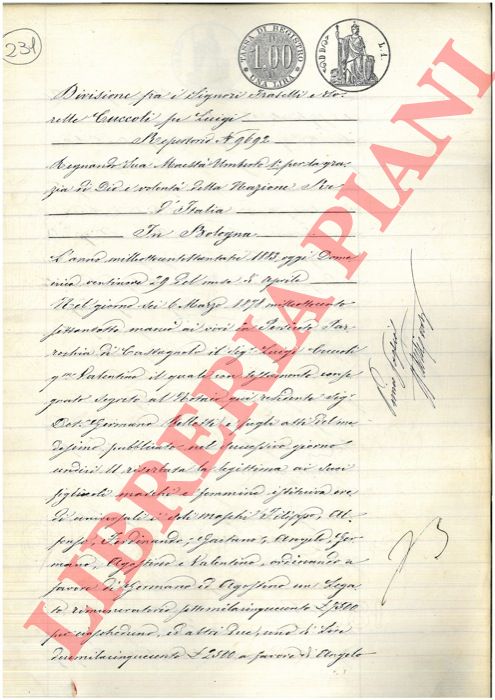 231
TASSA DI REGISTRO
1.00
UNA LIRA
L.1.
Divisione fra i Signori Fratelli e So-
relle Cuccoli fu Luigi
Repertorio N. 9692
Regnando Sua Maestà Umberto 1° per la gra-
zia di Dio e volontà della Nazione Re
d'Italia
In Bologna
L'anno milleottocentottantatre 1883, oggi Dome-
nica ventinove 29 del mese di Aprile
Nel giorno sei 6 Marzo 1878 milleottocento
settantotto mancò ai vivi in Par-
rochia di Castagnolo il Sig. Luigi Cuccoli
qm Valentino il quale con testamento conse-
gnato segreto al Notaio qui residente Sig.
Dot. Germano e fugli atti del me-
desimo pubblicato nel successivo giorno
undici 11 riserbata la legittima ai suoi
figliuoli maschi e femmine istituiva ere-
di universali i soli maschi Filippo, Al-
fonso, Ferdinando, Gaetano, Angelo, Ger-
mano, Agostino e Valentino, ordinando a
favore di Germano ed Agostino un Lega-
to rimuneratorio settemilacinquecento £ 7500
per ciascheduno, ed altri due, uno di Lire
duemilacinquecento £ 2500 a favore di Angelo
LIBRERIA PIANI